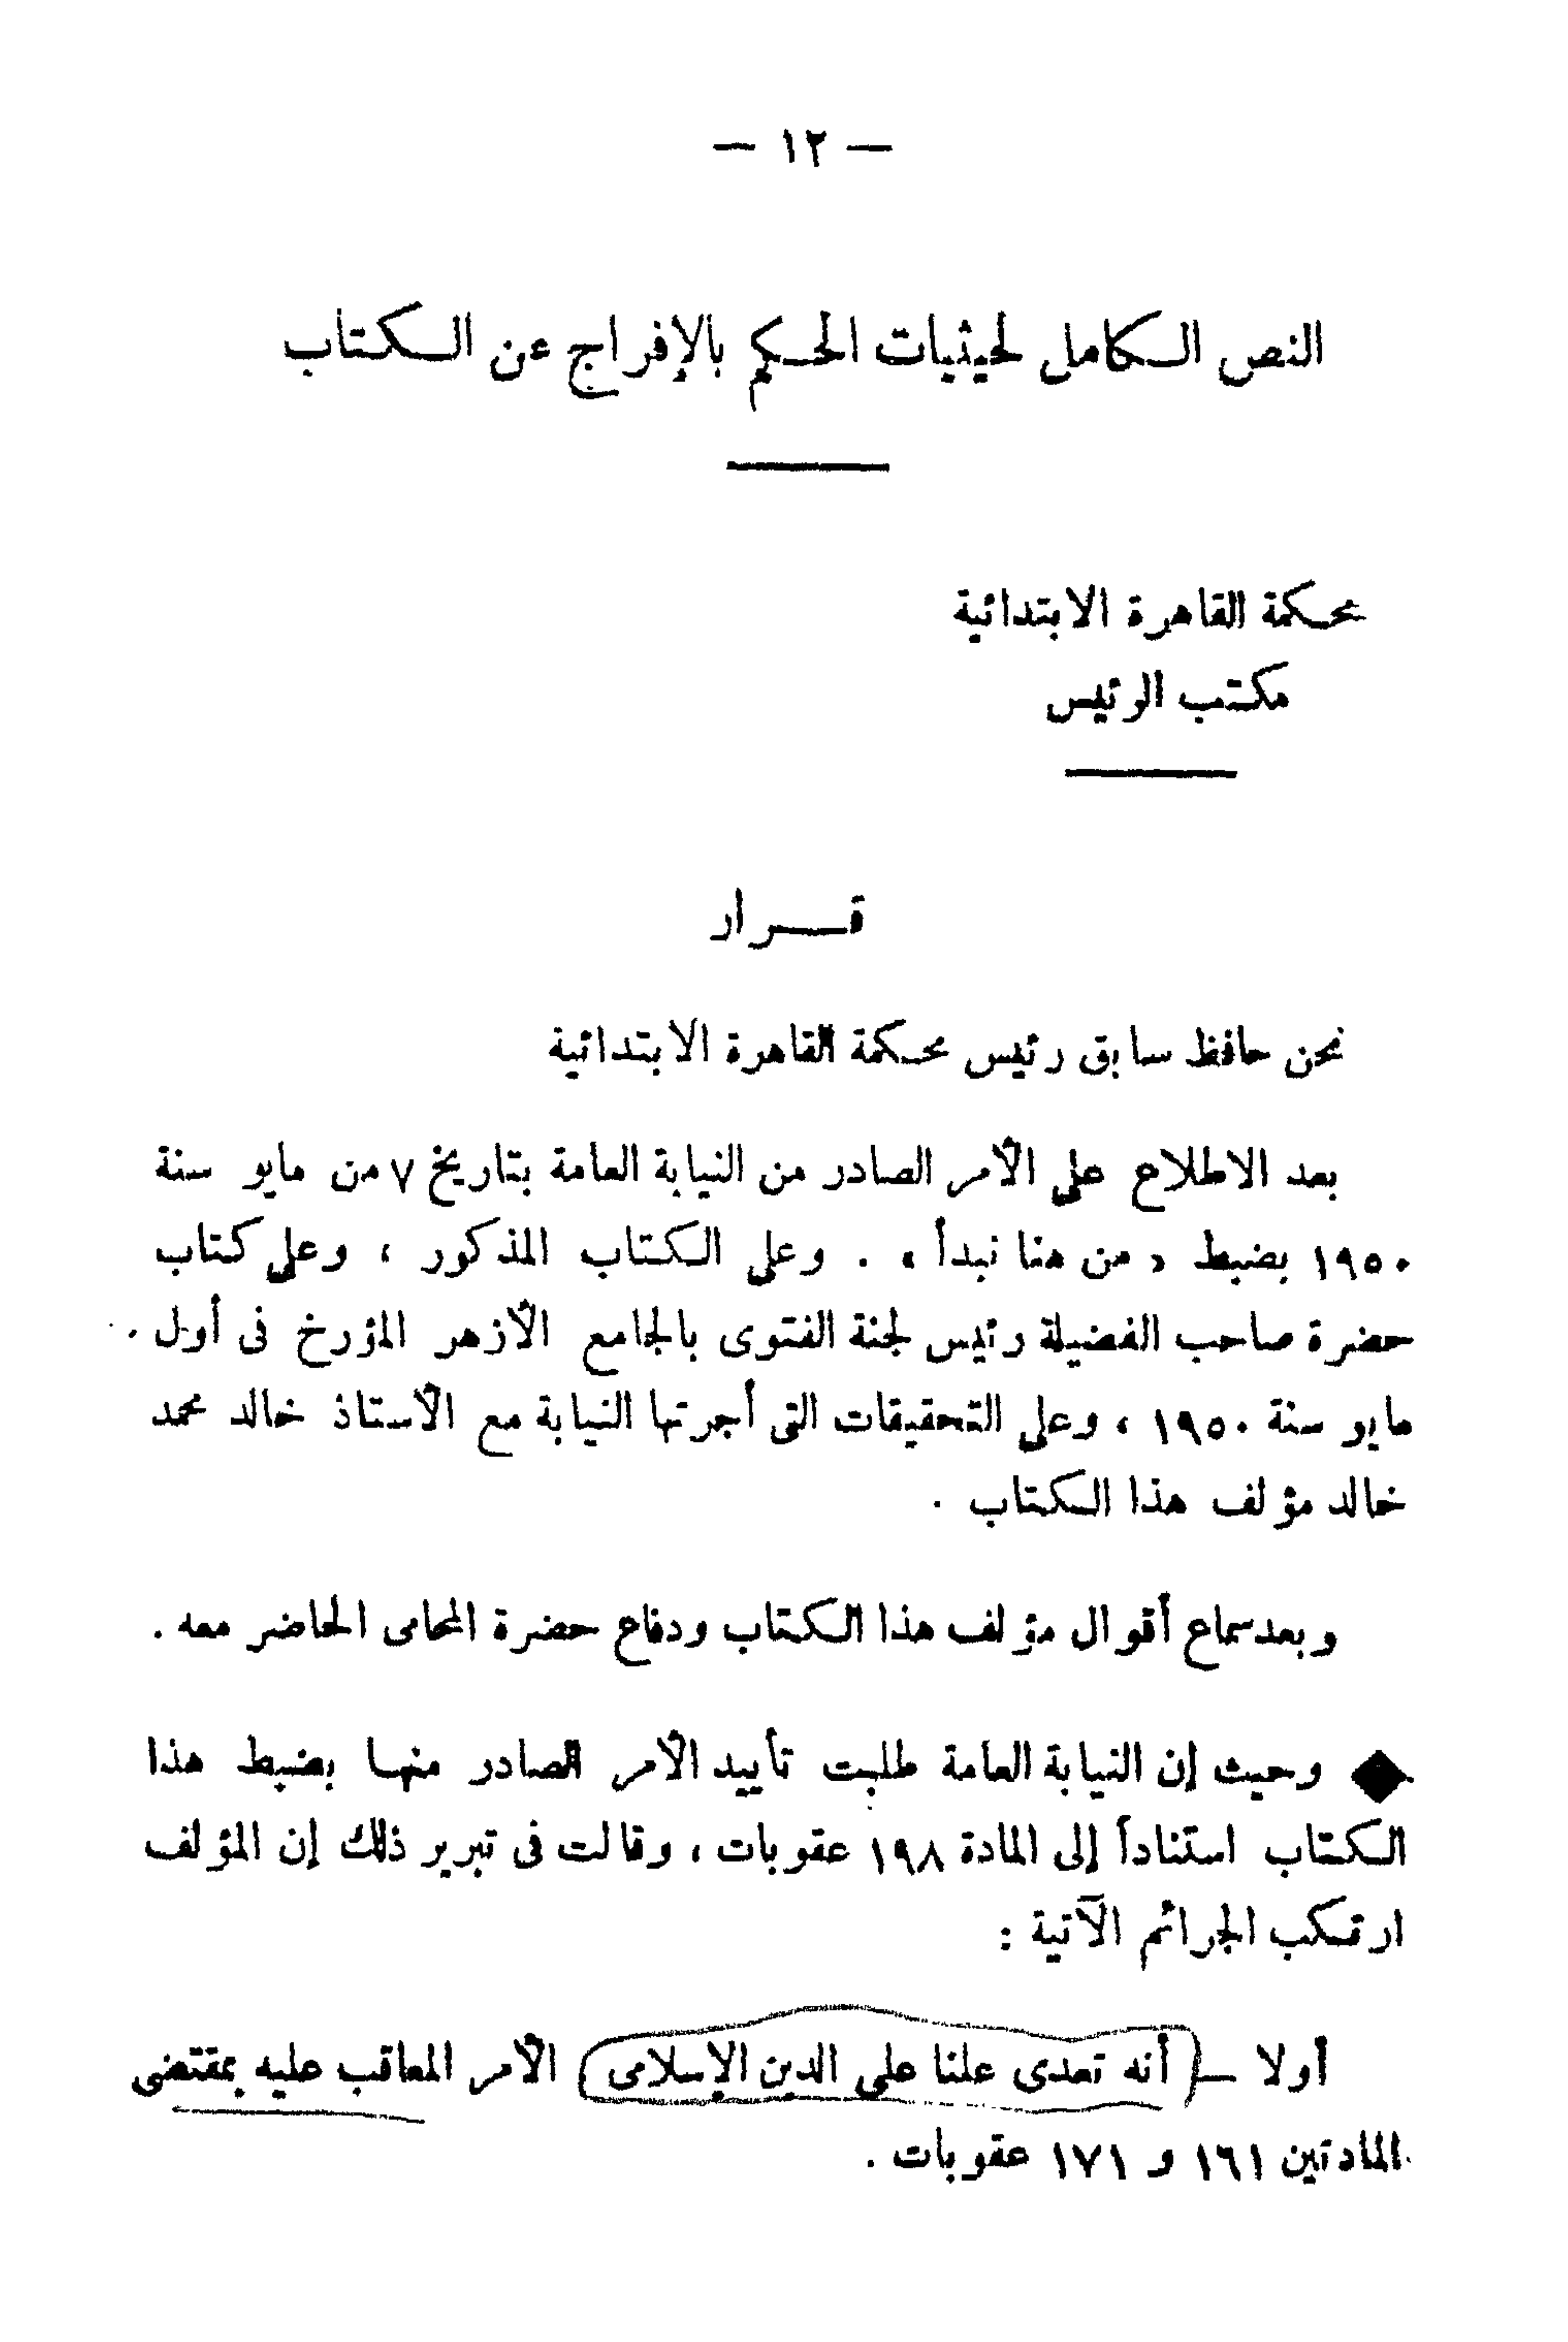 — ١٢ —
النص الكامل لحيثيات الحكم بالإفراج عن الكتاب
محكمة القاهرة الابتدائية
مكتب الرئيس
قرار
نحن حافظ سابق رئيس محكمة القاهرة الابتدائية
بعد الاطلاع على الأمر الصادر من النيابة العامة بتاريخ ٧ من مايو سنة
١٩٥٠ بضبط « من هنا نبدأ » . وعلى الكتاب المذكور ، وعلى كتاب
حضرة صاحب الفضيلة رئيس لجنة الفتوى بالجامع الأزهر المؤرخ فى أول
مايو سنة ١٩٥٠ ، وعلى التحقيقات التى أجرتها النيابة مع الأستاذ خالد محمد
خالد مؤلف هذا الكتاب .
وبعد سماع أقوال مؤلف هذا الكتاب ودفاع حضرة المحامى الحاضر معه .
◆ وحيث إن النيابة العامة طلبت تأييد الأمر الصادر منها بضبط هذا
الكتاب استناداً إلى المادة ١٩٨ عقوبات ، وقالت فى تبرير ذلك إن المؤلف
ارتكب الجرائم الآتية :
أولا — أنه تعدى علنا على الدين الإسلامى الأمر المعاقب عليه بمقتضى
المادتين ١٦١ و ١٧١ عقوبات .